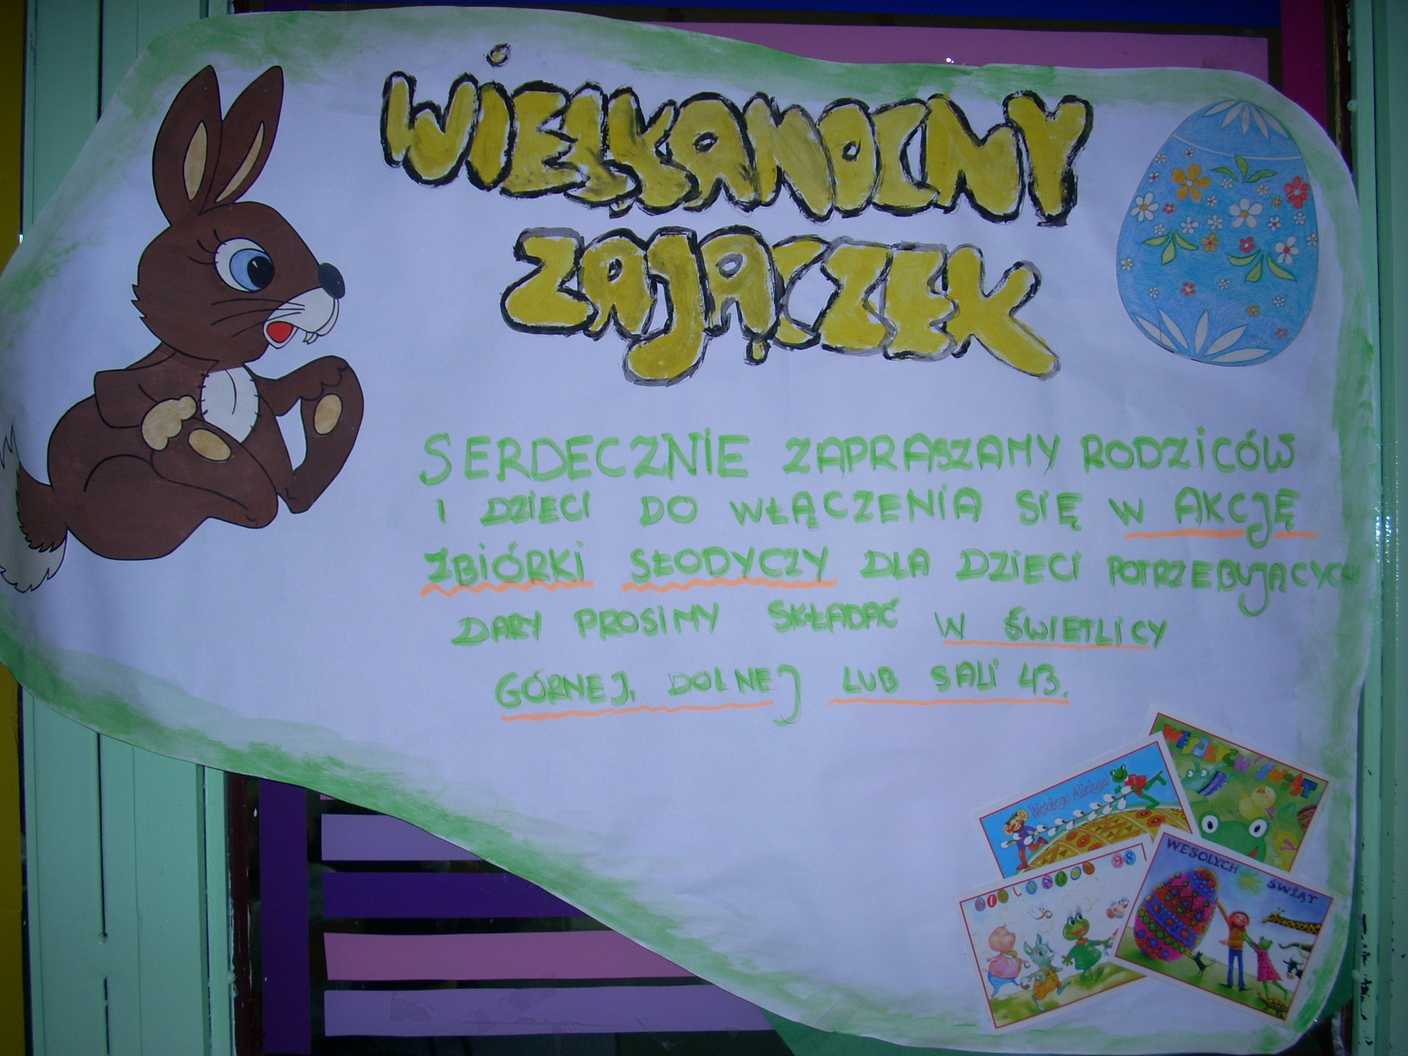 WIELKANOCNY
ZAJĄCZEK
SERDECZNIE ZAPRASZAMY RODZICÓW
I DZIECI DO WŁĄCZENIA SIĘ W AKCJĘ
ZBIÓRKI SŁODYCZY DLA DZIECI POTRZEBUJĄCYCH
DARY PROSIMY SKŁADAĆ W ŚWIETLICY
GÓRNEJ, DOLNEJ LUB SALI 43.
Wesołego Alleluja
WESOŁYCH ŚWIĄT